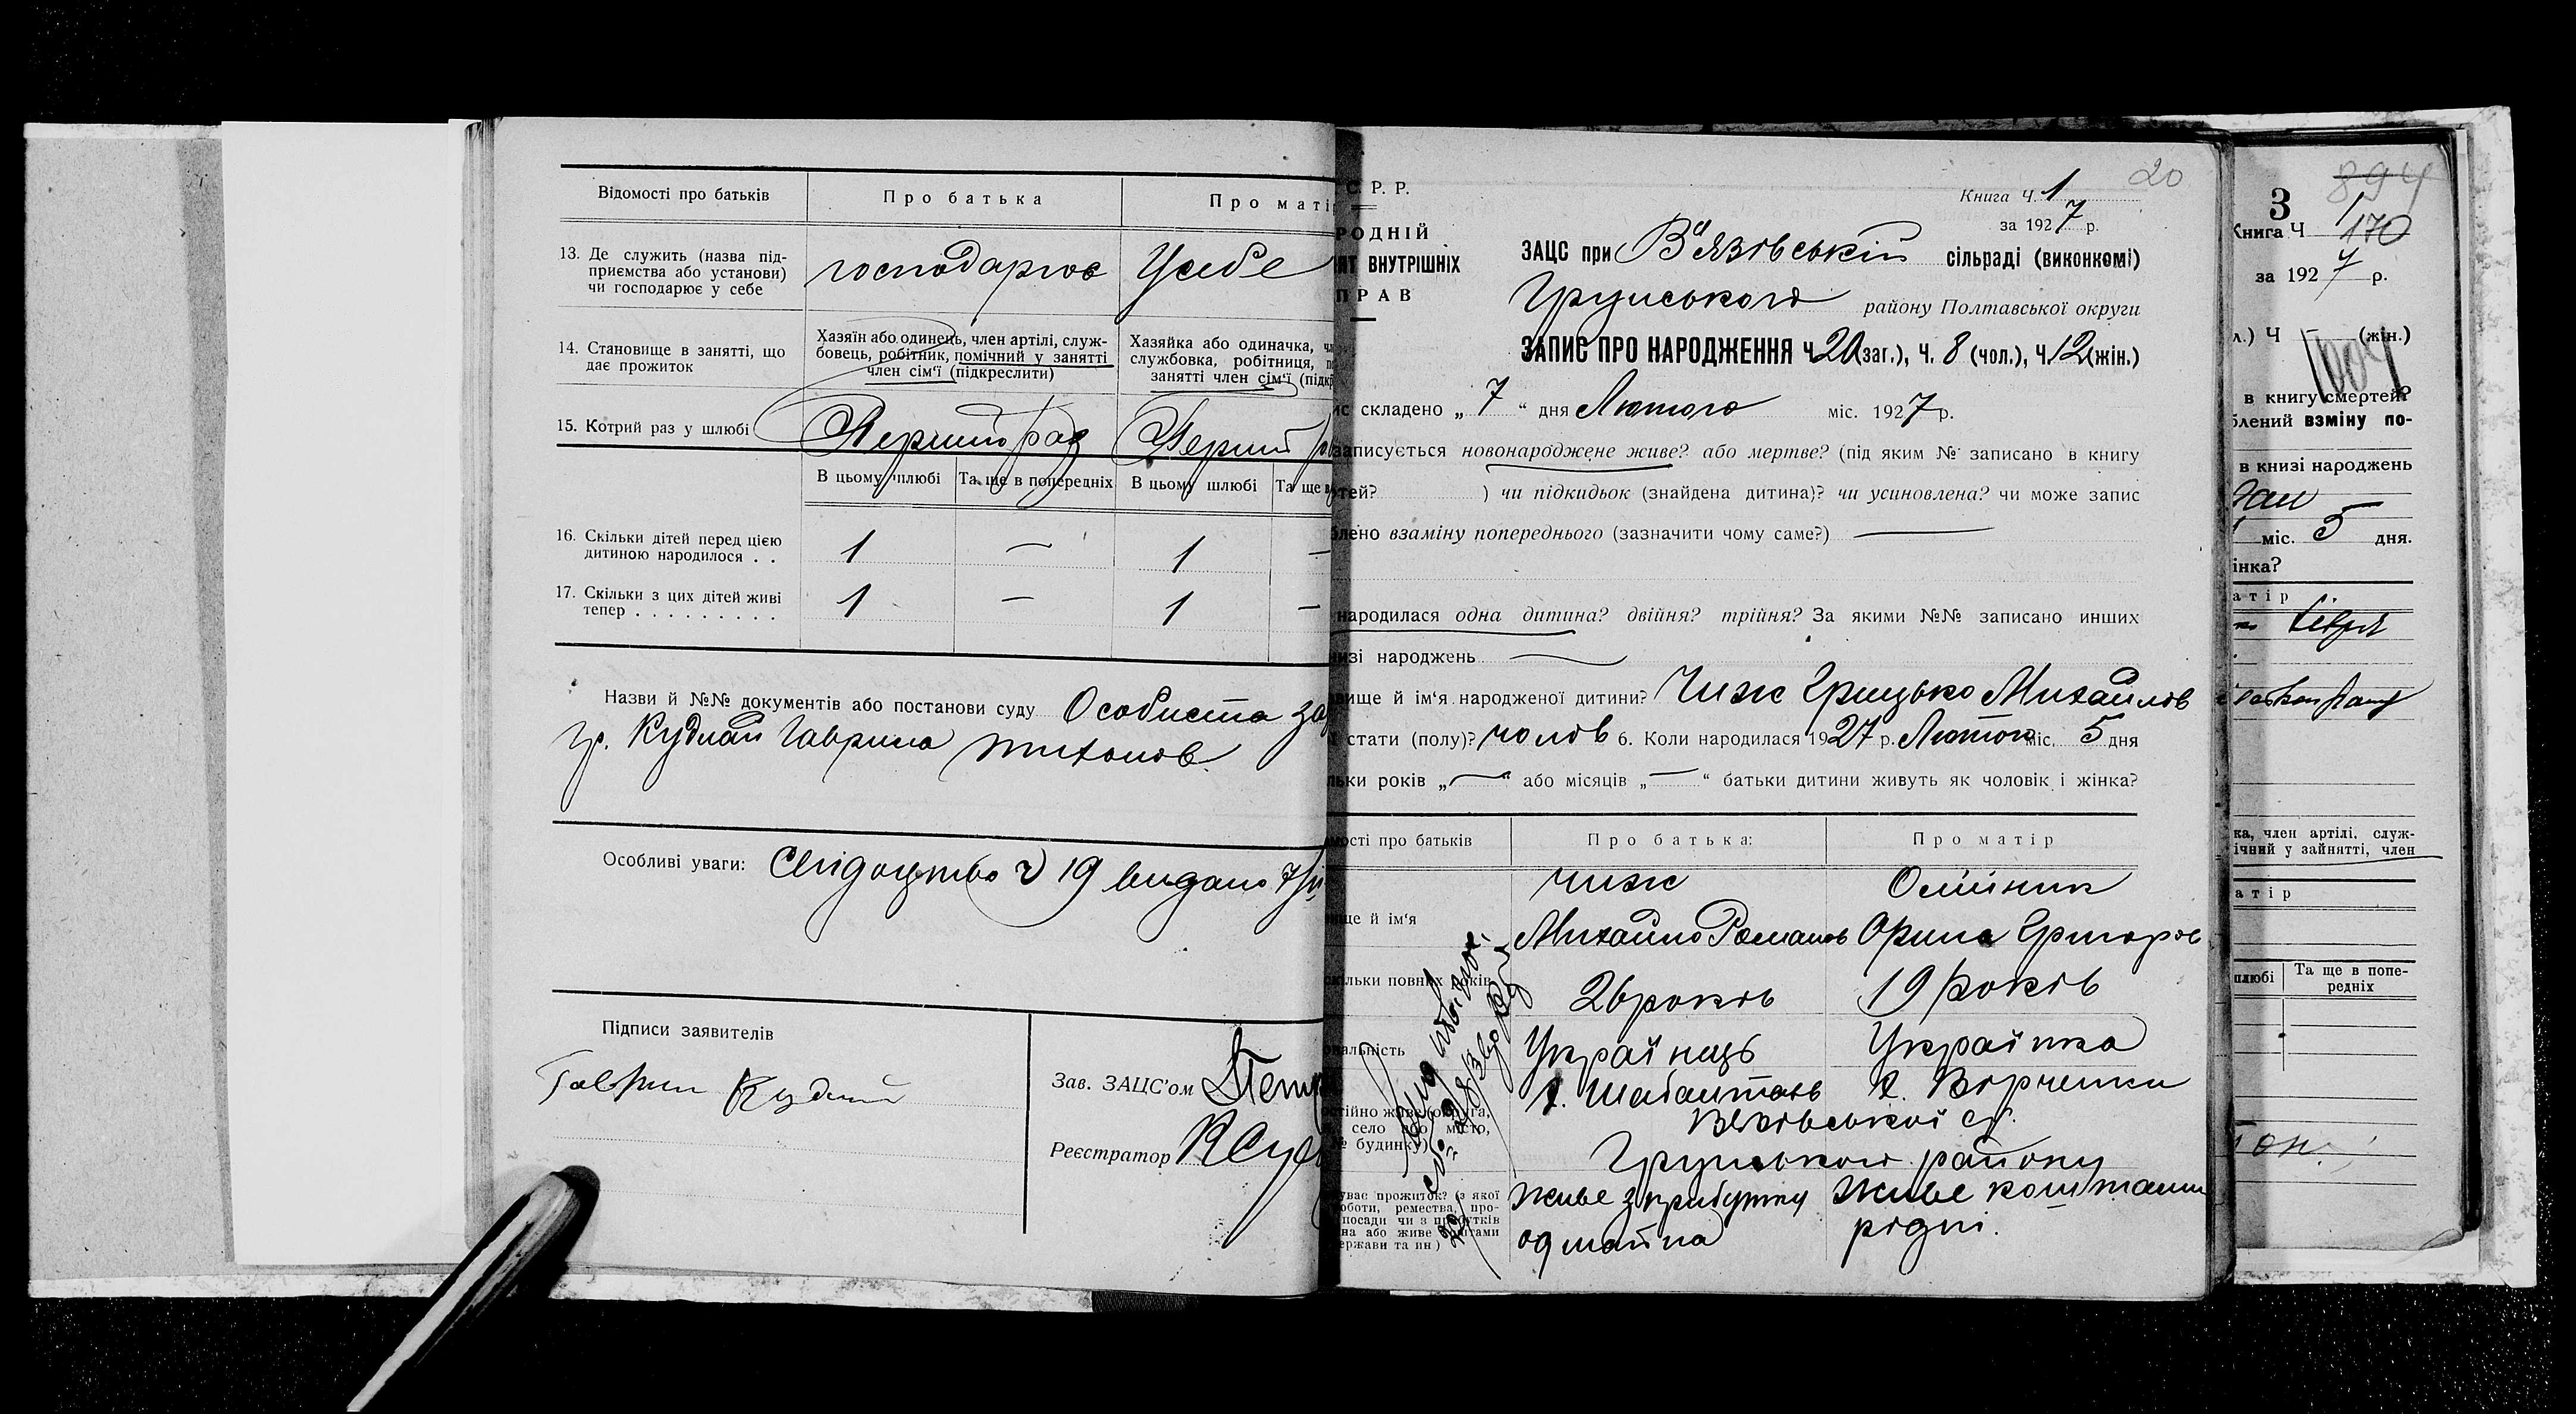 Відомості про батьків
Про батька
Про маті
13. Де служить (назва під-
приємства або установи)
чи господарює у себе
господарює
У себе
14. Становище в занятті, що
дає прожиток
Хазяїн або одинець, член артілі, служ-
бовець, робітник, помічний у занятті
член сім'ї (підкреслити)
Хазяйка або одиначка, чл
службовка, робітниця, п
занятті член сім'ї (підкр
15. Котрий раз у шлюбі
Перший раз
Перший
В цьому шлюбі
Та ще в попередніх
В цьому шлюбі
Та ще в
16. Скільки дітей перед цією
дитиною народилося . .
1 — 1 —
17. Скільки з цих дітей живі
тепер . . . . . . . . .
1 — 1 —
Назви й №№ документів або постанови суду Особиста за
гр. Кудлай Гаврила Тихонов.
Особливі уваги: Свідоцтво Ч 19 видано 7/ІІ
Підписи заявителів
Гаврил Кудлай
Зав. ЗАЦС'ом
Реєстратор
20
С. Р. Р.
РОДНІЙ
ЯТ ВНУТРІШНІХ
ПРАВ
Книга Ч. 1
за 1927 р.
ЗАЦС при В'язівській сільраді (виконкомі)
Грунського району Полтавської округи
ЗАПИС ПРО НАРОДЖЕННЯ Ч 20 (заг.), Ч. 8 (чол.), Ч. 12 (жін.)
ис складено „ 7 “ дня Лютого міс. 1927 р.
записується новонароджене живе? або мертве? (під яким № записано в книгу
тей? ) чи підкидьок (знайдена дитина)? чи усиновлена? чи може запис
блено взаміну попереднього (зазначити чому саме?) —
народилася одна дитина? двійня? трійня? За якими №№ записано инших
низі народжень —
вище й ім'я народженої дитини? Чиж Грицько Михайлов
статі (полу)? чолов 6. Коли народилася 1927 р. Лютого міс. 5 дня
льки років „ — “ або місяців „ — “ батьки дитини живуть як чоловік і жінка?
мості про батьків
Про батька:
Про матір
ище й ім'я
Чиж
Михайло Романов
Олійник
Орина Григоров
скільки повних років
26 років
19 років
ональність
Українець
Українка
стійно живе (округа,
село або місто,
№ будинку)
х. Шабантаєв
х. Вірченки
В'язівської с/р.
Грунського району
уває прожиток? (з якої
оботи, ремества, про-
посади чи з прибутків
на або живе коштами
ержави та ин)
живе з прибутку
од майна
живе коштами
рідні.
3
894
Книга Ч 1
170
за 1927 р.
л.) Ч (жін.)
в книгу смертей?
блений взміну по-
в книзі народжень
міс. 5 дня.
інка?
атір
ка, член артілі, служ-
ічний у зайнятті, член
атір
шлюбі
Та ще в попе-
редніх